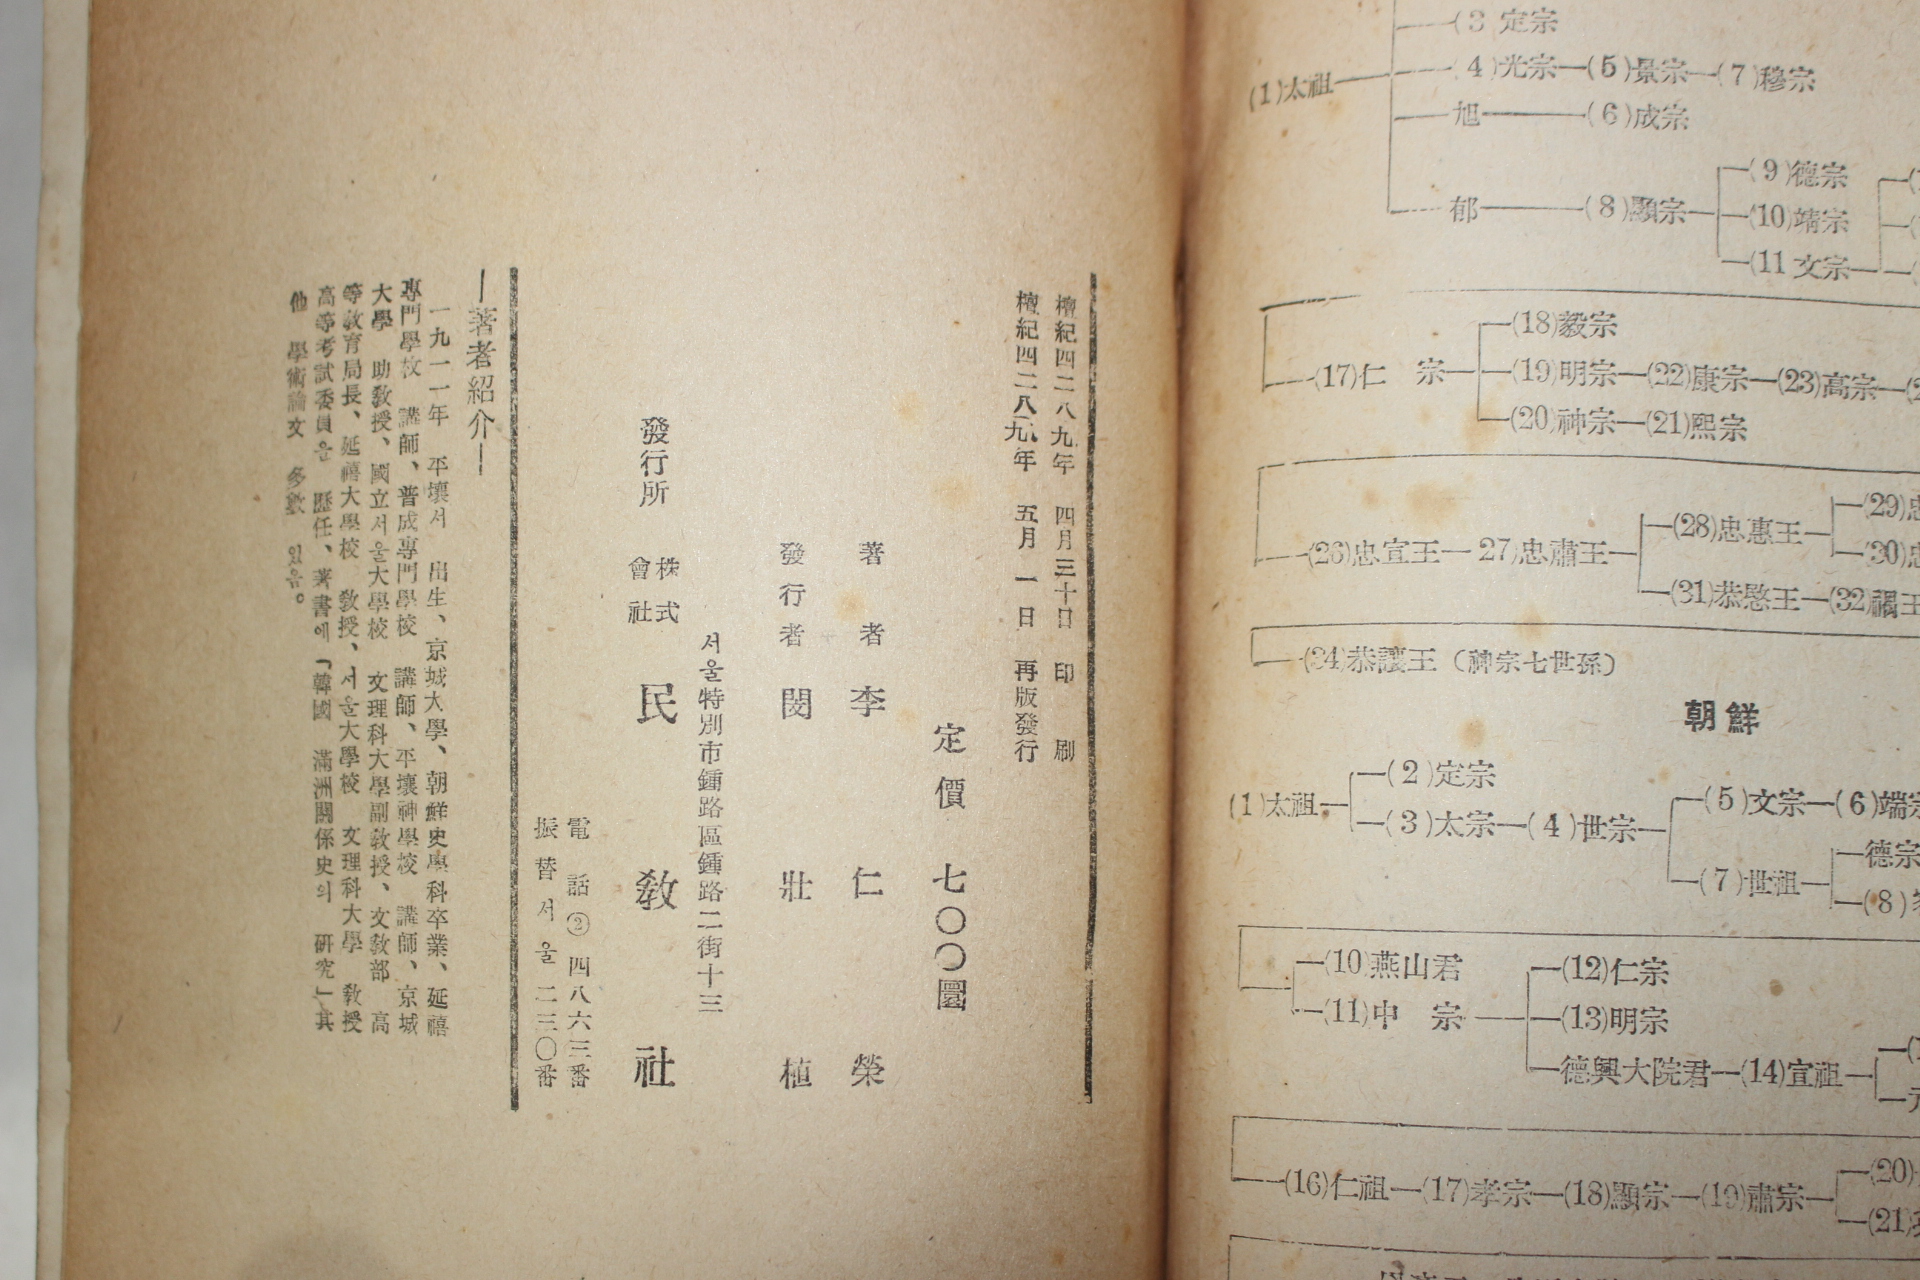 檀紀四二八九年 四月三十日 印 刷
檀紀四二八九年 五月 一 日 再版發行
定價 七〇〇圜
著者 李仁榮
發行者 閔壯植
서울特別市鍾路區鍾路二街十三
發行所 株式會社 民敎社
電話② 四八六三番
振替서울 二三〇番
―著者紹介―
一九一一年 平壤서 出生、京城大學、朝鮮史學科卒業、延禧
專門學校 講師、普成專門學校 講師、平壤神學校 講師、京城
大學 助敎授、國立서울大學校 文理科大學副敎授、文敎部 高
等敎育局長、延禧大學校 敎授、서울大學校 文理科大學 敎授
高等考試委員을 歷任、著書에「韓國 滿洲關係史의 硏究」其
他 學術論文 多數 있음。
(3 定宗
(1)太祖 (4)光宗―(5)景宗―(7)穆宗
旭―(6)成宗
(9)德宗
郁―(8)顯宗 (10)靖宗
(11 文宗
(18)毅宗
(17)仁 宗 (19)明宗―(22)康宗―(23)高宗
(20)神宗―(21)熙宗
(29)忠
(28)忠惠王
(26)忠宣王― 27)忠肅王 (30)忠
(31)恭愍王―(32)禑王
(34)恭讓王 (神宗七世孫)
朝鮮
(2)定宗
(1)太祖 (5)文宗―(6)端宗
(3)太宗―(4)世宗
德宗
(7)世祖
(8)
(10)燕山君 (12)仁宗
(11)中 宗 (13)明宗
德興大院君―(14)宣祖
元
(20)
(16)仁祖―(17)孝宗―(18)顯宗―(19)肅宗
(21)